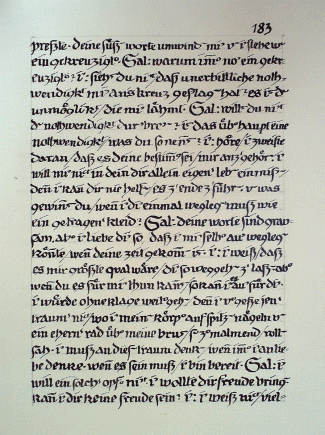 183
preßte. deine süß worte umwind mi u i stehe we
ein gekreuzigt. Sal: warum im no ein gekr
euzigt? i: sieh du ni daß unerbittliche noth
wendigk mi ans kreuz geschlag hat? es i de
unmöglichk die mi lähmt. Sal: willst du ni
de nothwendigkt durchbrech? i das überhaupt eine
nothwendigk was du so nenst? i: höre, i zweifle
daran, daß es deine bestim sei mir anzgehör. i
will mi ni in dein dir allein eigen leb einmisch
den i kan dir nie helf es z ende z führ. u was
gewinst du, wen i di einmal wegleg muß wie
ein getragen kleid? Sal: deine worte sind grau
sam. ab i liebe di so, daß i mi selb au wegleg
könte, wen deine zeit gekom i. i: i weiß, daß
es mir größte qual wäre, di so weggeh z lass. ab
wen du es für mi thun kan, so kan i au für di.
i würde ohne klage weitergeh, den i vergesse jen
traum ni, wo i mein körp auf spitz nägeln u
ein ehern rad üb meine brust zermalmend roll
sah. i muß an dies traum denk, wen im i an lie
be denke. wen es sein muß, i bin bereit. Sal: i
will ein solch opf ni. i wollte dir freude bring.
kan i dir keine freude sein? i: i weiß ni, viel-